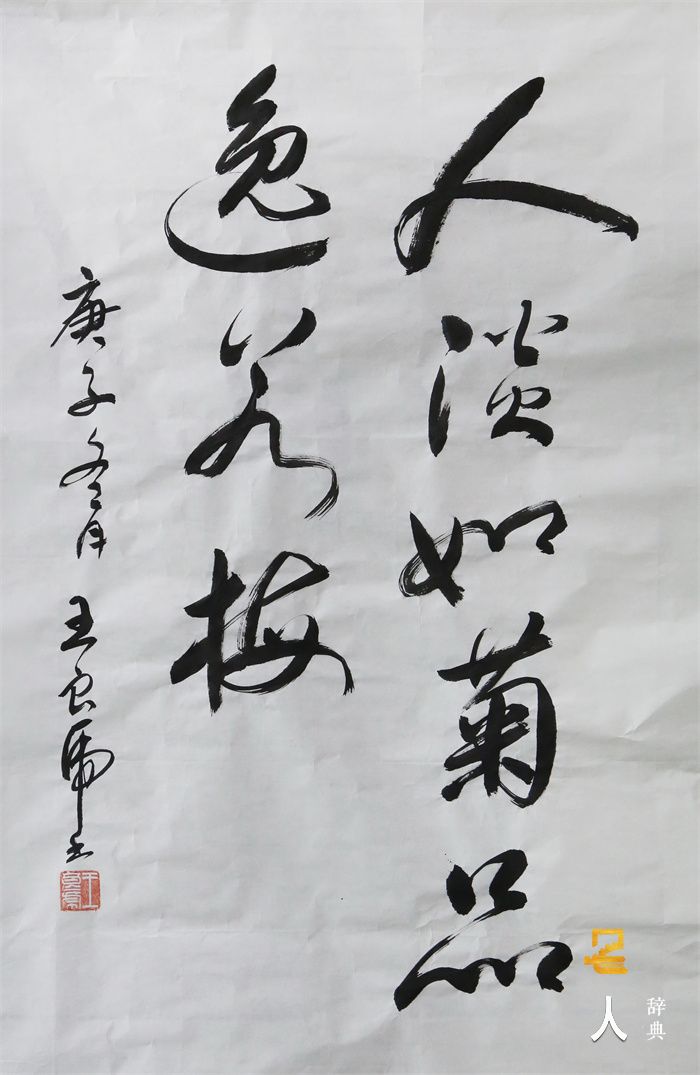 人淡如菊品
逸若梅
庚子冬月 王良虎书
名人
辞典